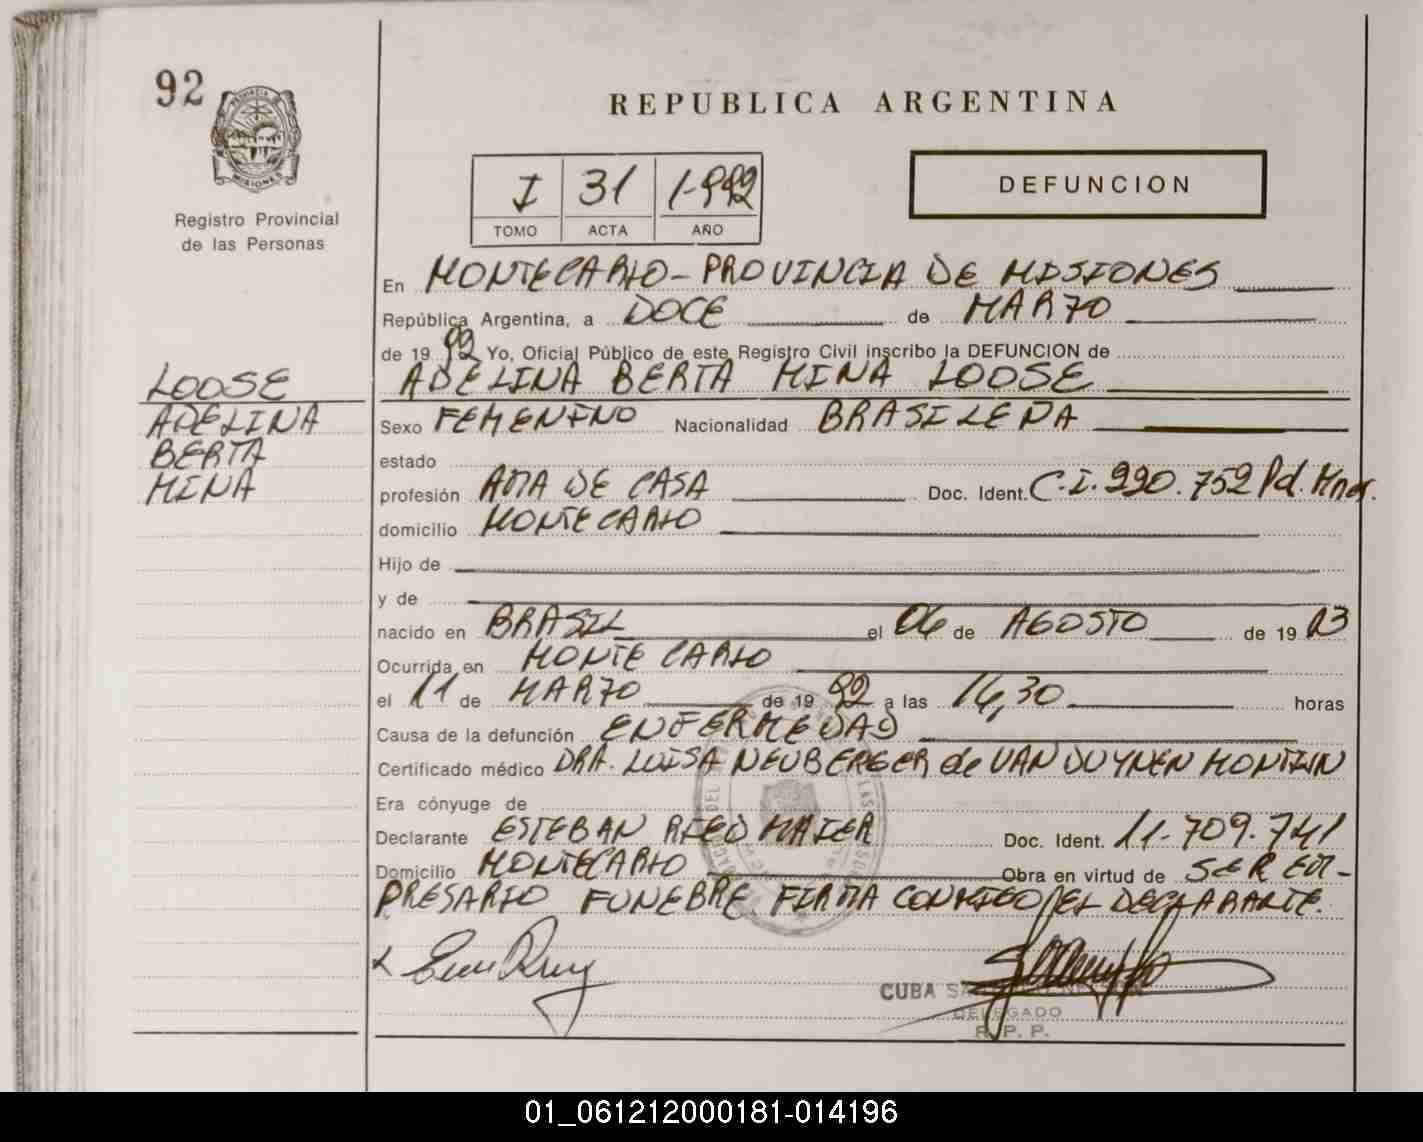 92
REPUBLICA ARGENTINA
PROVINCIA DE
MISIONES
Registro Provincial
de las Personas
I 31 1992
TOMO ACTA AÑO
DEFUNCION
En MONTECARLO - PROVINCIA DE MISIONES
República Argentina, a DOCE de MARZO
de 19 92 Yo, Oficial Público de este Registro Civil inscribo la DEFUNCION de
LOOSE
ADELINA
BERTA
MINA
ADELINA BERTA MINA LOOSE
Sexo FEMENINO Nacionalidad BRASILEÑA
estado
profesión AMA DE CASA Doc. Ident. C.I. 990.752 Pol. Mnes.
domicilio MONTECARLO
Hijo de
y de
nacido en BRASIL el 06 de AGOSTO de 19 13
Ocurrida en MONTECARLO
el 11 de MARZO de 19 92 a las 14,30 horas
Causa de la defunción ENFERMEDAD
Certificado médico DRA. LUISA NEUBERGER de VAN DUYNEN MONTZUN
Era cónyuge de
Declarante ESTEBAN MAIER Doc. Ident. 11.709.741
Domicilio MONTECARLO Obra en virtud de SER EM-
PRESARIO FUNEBRE. FIRMA CONMIGO EL DECLARANTE.
CUBA
DELEGADO
R. P. P.
01_061212000181-014196